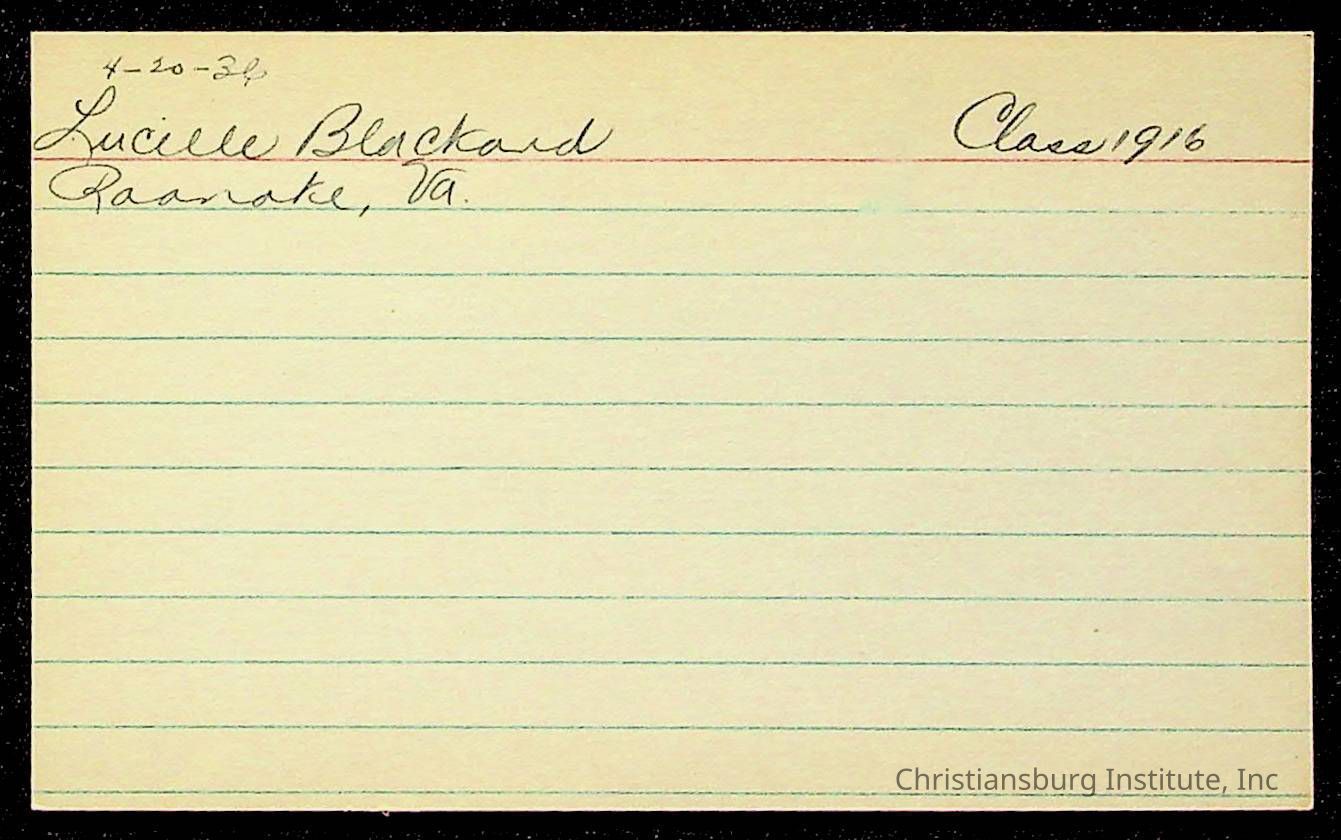 4-20-36
Lucille Blackard Class 1916
Roanoke, Va.
Christiansburg Institute, Inc